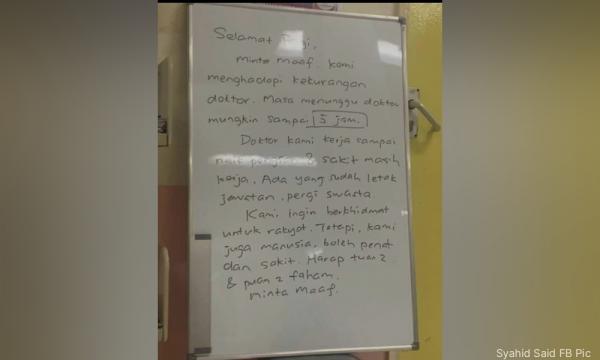 Selamat Pagi,
minta maaf. Kami
menghadapi kekurangan
doktor. Masa menunggu doktor
mungkin sampai 5 jam.
Doktor kami kerja sampai
sakit masih
kerja. Ada yang sudah letak
jawatan, pergi swasta.
Kami ingin berkhidmat
untuk rakyat. Tetapi, kami
juga manusia, boleh penat
dan sakit. Harap tuan2
& puan2 faham.
minta maaf.
Syahid Said FB Pic